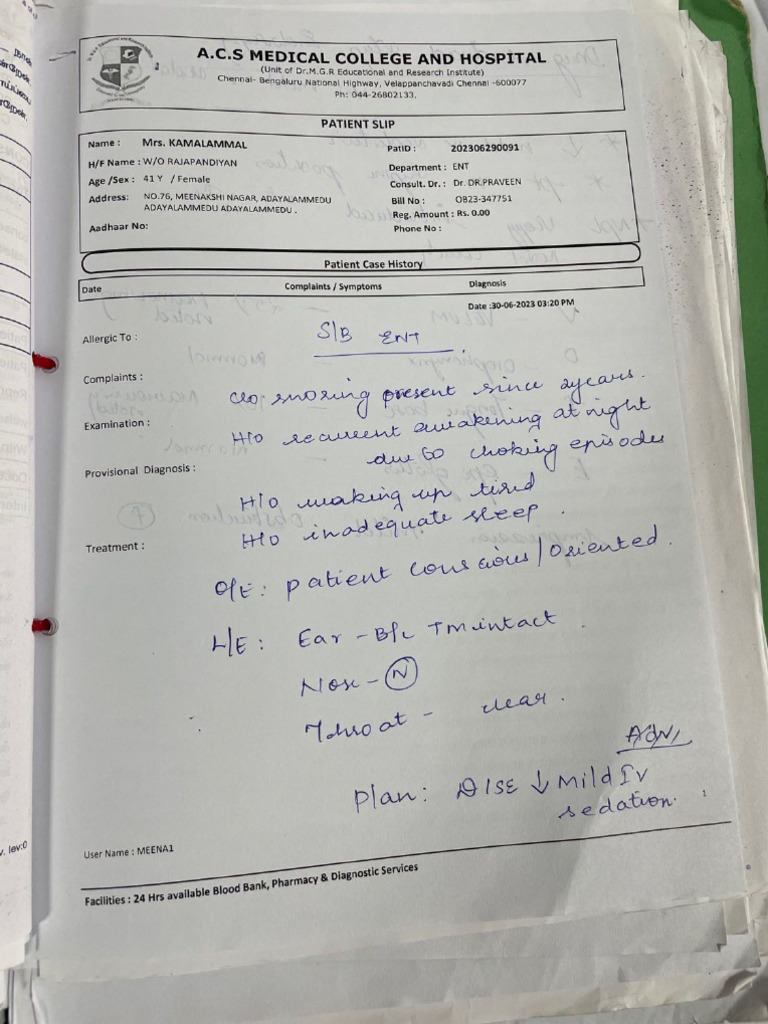 A.C.S MEDICAL COLLEGE AND HOSPITAL
(Unit of Dr.M.G.R Educational and Research Institute)
Chennai- Bengaluru National Highway, Velappanchavadi Chennai -600077
Ph: 044-26802133.
PATIENT SLIP
Name : Mrs. KAMALAMMAL PatID : 202306290091
H/F Name : W/O RAJAPANDIYAN Department : ENT
Age /Sex : 41 Y / Female Consult. Dr. : Dr. DR.PRAVEEN
Address: NO.76, MEENAKSHI NAGAR, ADAYALAMMEDU Bill No : OB23-347751
ADAYALAMMEDU ADAYALAMMEDU . Reg. Amount : Rs. 0.00
Aadhaar No: Phone No :
Patient Case History
Date Complaints / Symptoms Diagnosis
Date :30-06-2023 03:20 PM
Allergic To : S/B ENT
Complaints : c/o snoring present since 2years.
Examination : H/o recurrent awakening at night
due to choking episodes
Provisional Diagnosis :
H/o waking up tired
H/o inadequate sleep .
Treatment :
O/E : patient conscious / Oriented .
L/E : Ear - B/L TM intact .
Nose - N
Throat - clear .
Adv,
Plan : DISE ↓ Mild IV
sedation. 1
User Name : MEENA1
Facilities : 24 Hrs available Blood Bank, Pharmacy & Diagnostic Services
v. lev:0